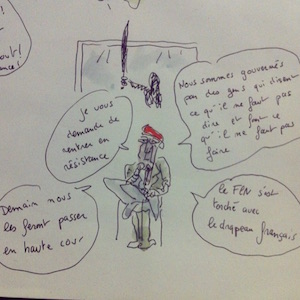 out!
ance!
Je vous
demande de
rentrer en
résistance
Nous sommes gouvernés
par des gens qui disent
ce qu'il ne faut pas
dire et font ce
qu'il ne faut pas
faire
Demain nous
les feront passer
en haute cour
le FLN s'est
torché avec
le drapeau français